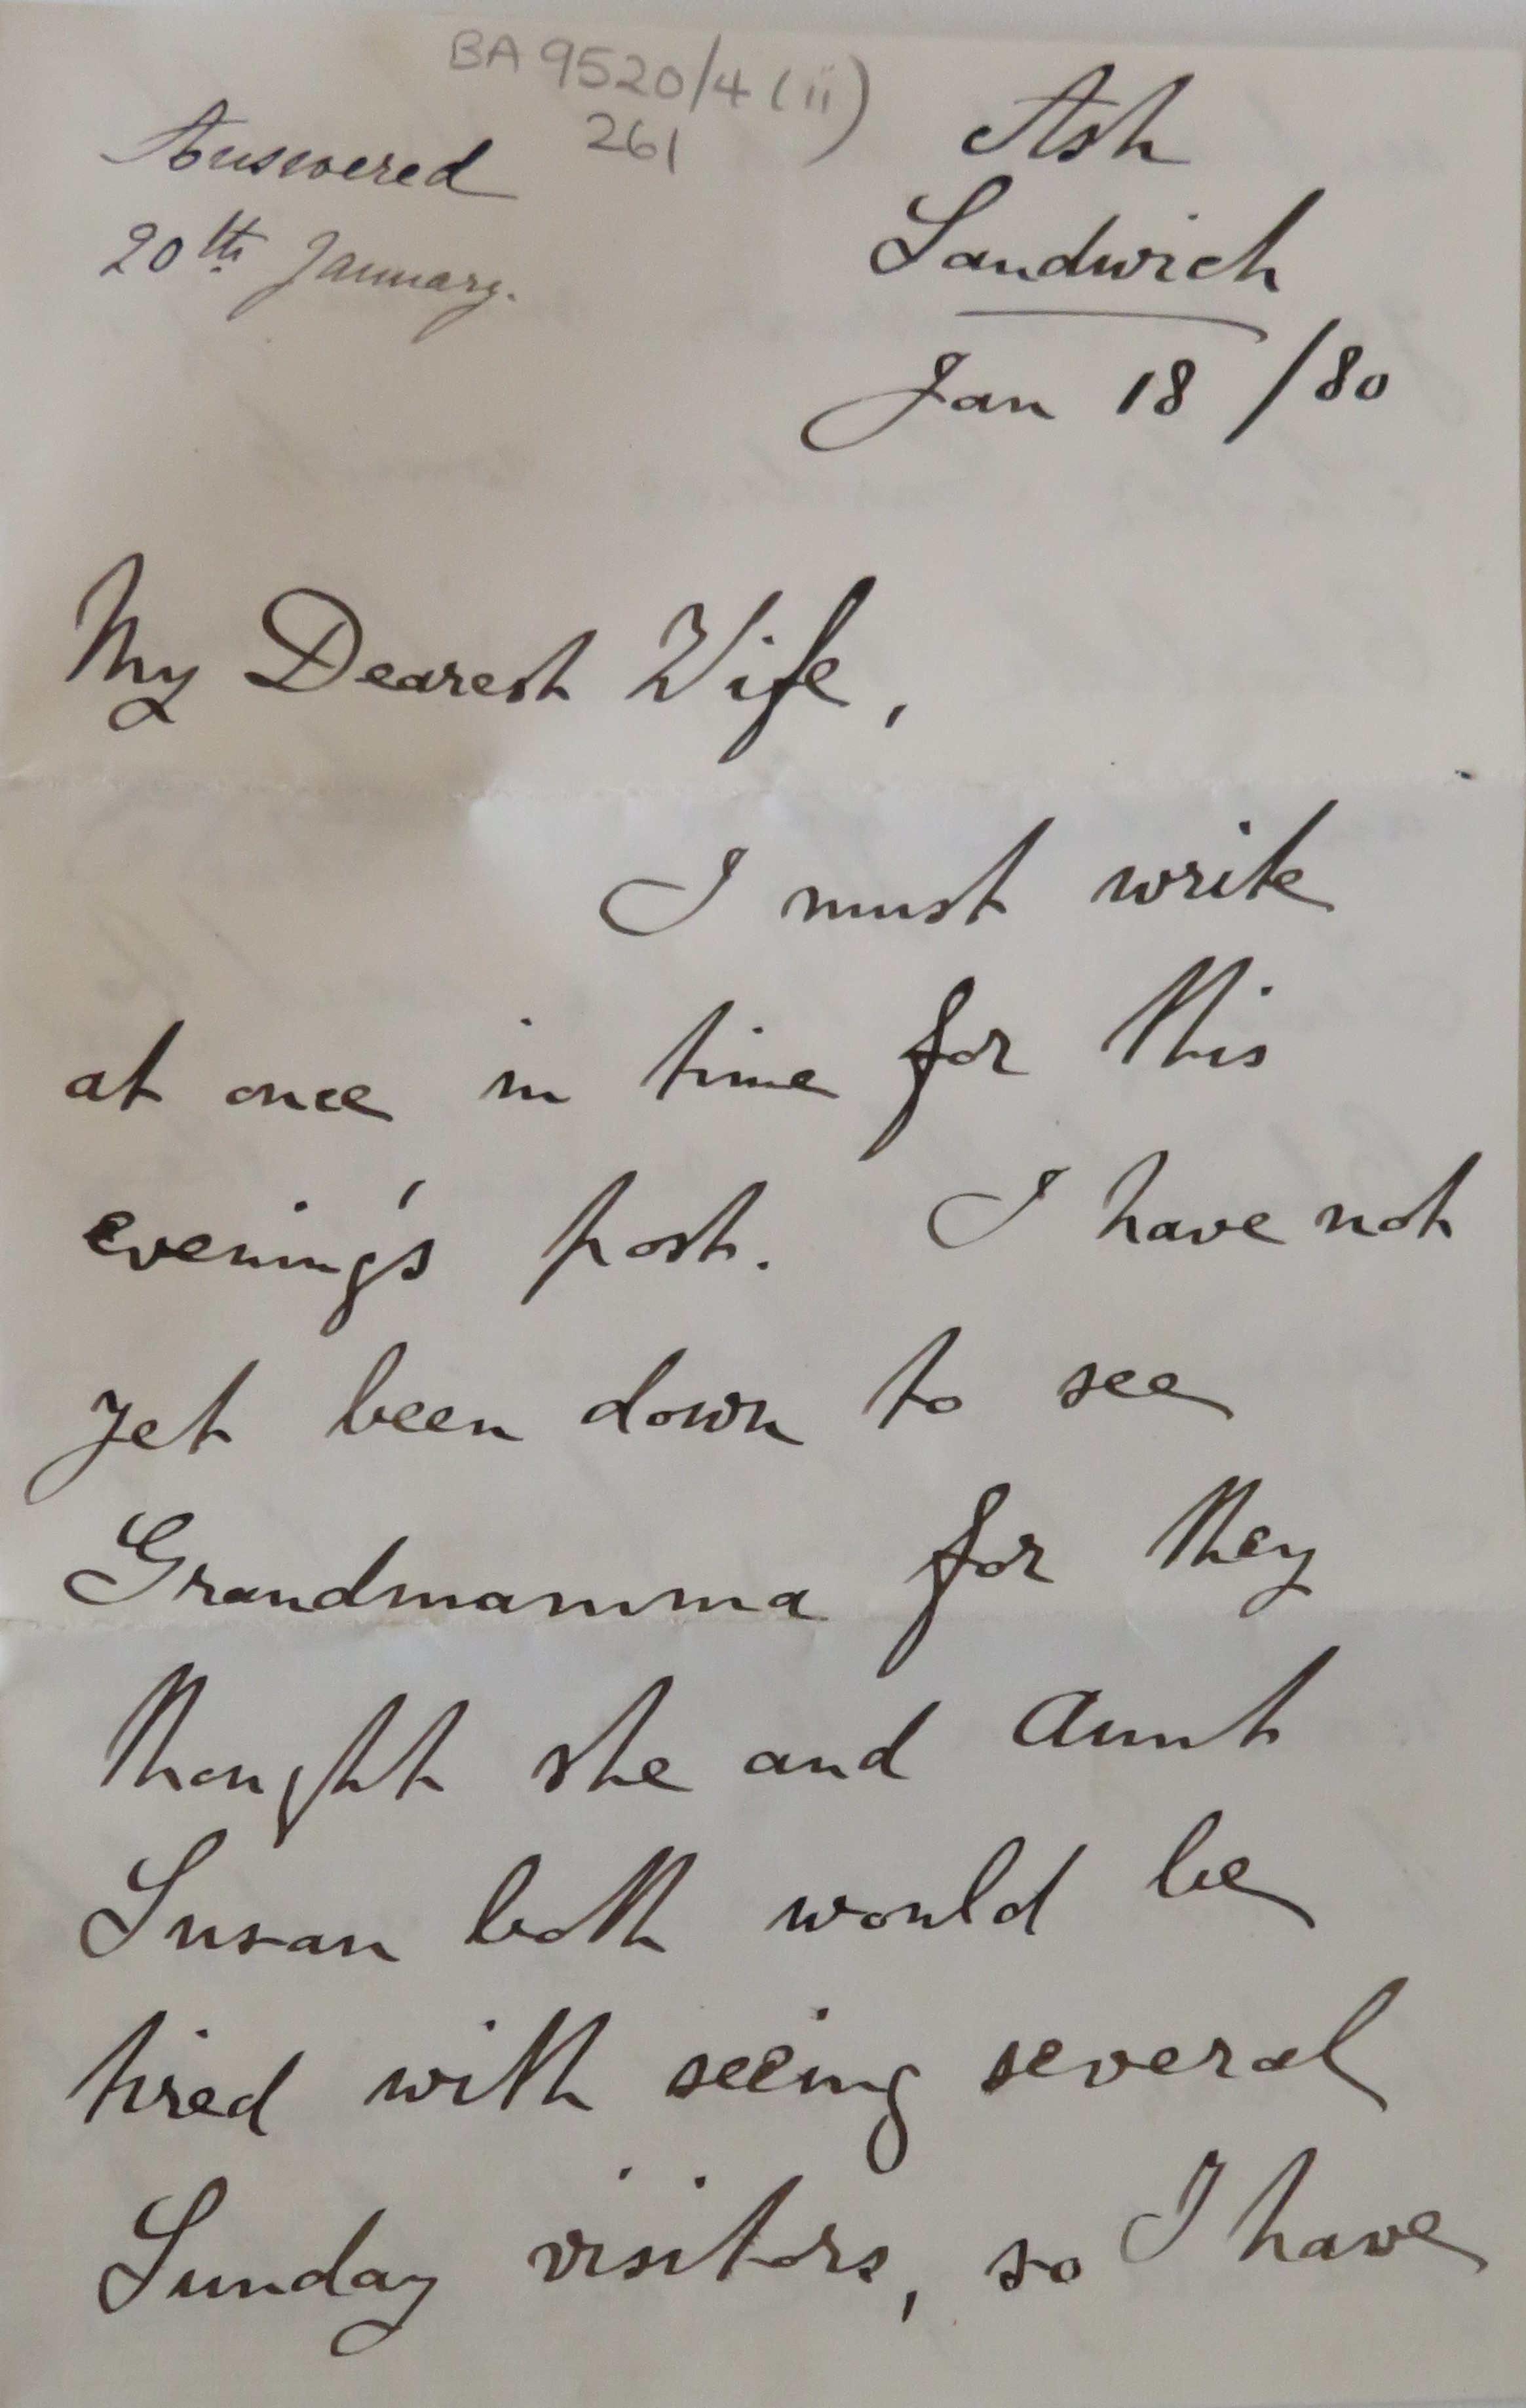 BA 9520/4 (ii)
261
Answered
20th January.
Ash
Sandwich
Jan 18 /80
My Dearest Wife,
I must write
at once in time for this
evening's post. I have not
yet been down to see
Grandmamma for they
thought she and Aunt
Susan both would be
tired with seeing several
Sunday visitors, so I have